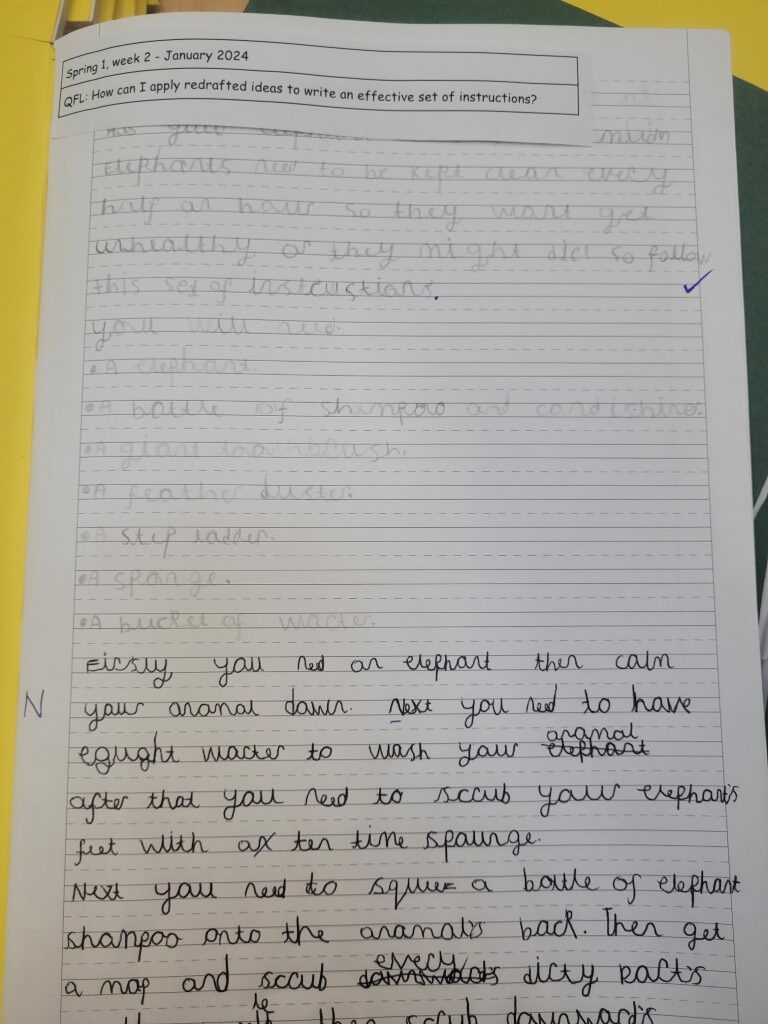 Spring 1, week 2 - January 2024
QFL: How can I apply redrafted ideas to write an effective set of instructions?
your
elephants need to be kept clean every
half an hour so they wont get
unhealthy or they might die! so follow
this set of instrcustions.
you will need:
• A elephant.
• A bottle of shmpoo and candishiner.
• A giant toothbrush.
• A feather duster.
• A step ladder.
• A sponge.
• A bucket of wacter.
Firsly you need an elephant then calm
N your aranal down. Next you need to have
egught wacter to wash your elephant aranal
after that you need to sccub your elephant's
feet with a ten time spaunge.
Next you need to squee a bottle of elephant
shanpoo onto the aramal's back. Then get
a mop and sccub every dirty part's
then sccub downward's